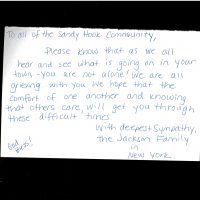 To all of the Sandy Hook Community,
Please know that as we all
hear and see what is going on in your
town - you are not alone! We are all
grieving with you. We hope that the
comfort of one another and knowing
that others care, will get you through
these difficult times
With deepest sympathy,
the Jackson Family
in
New York
God
Bless!